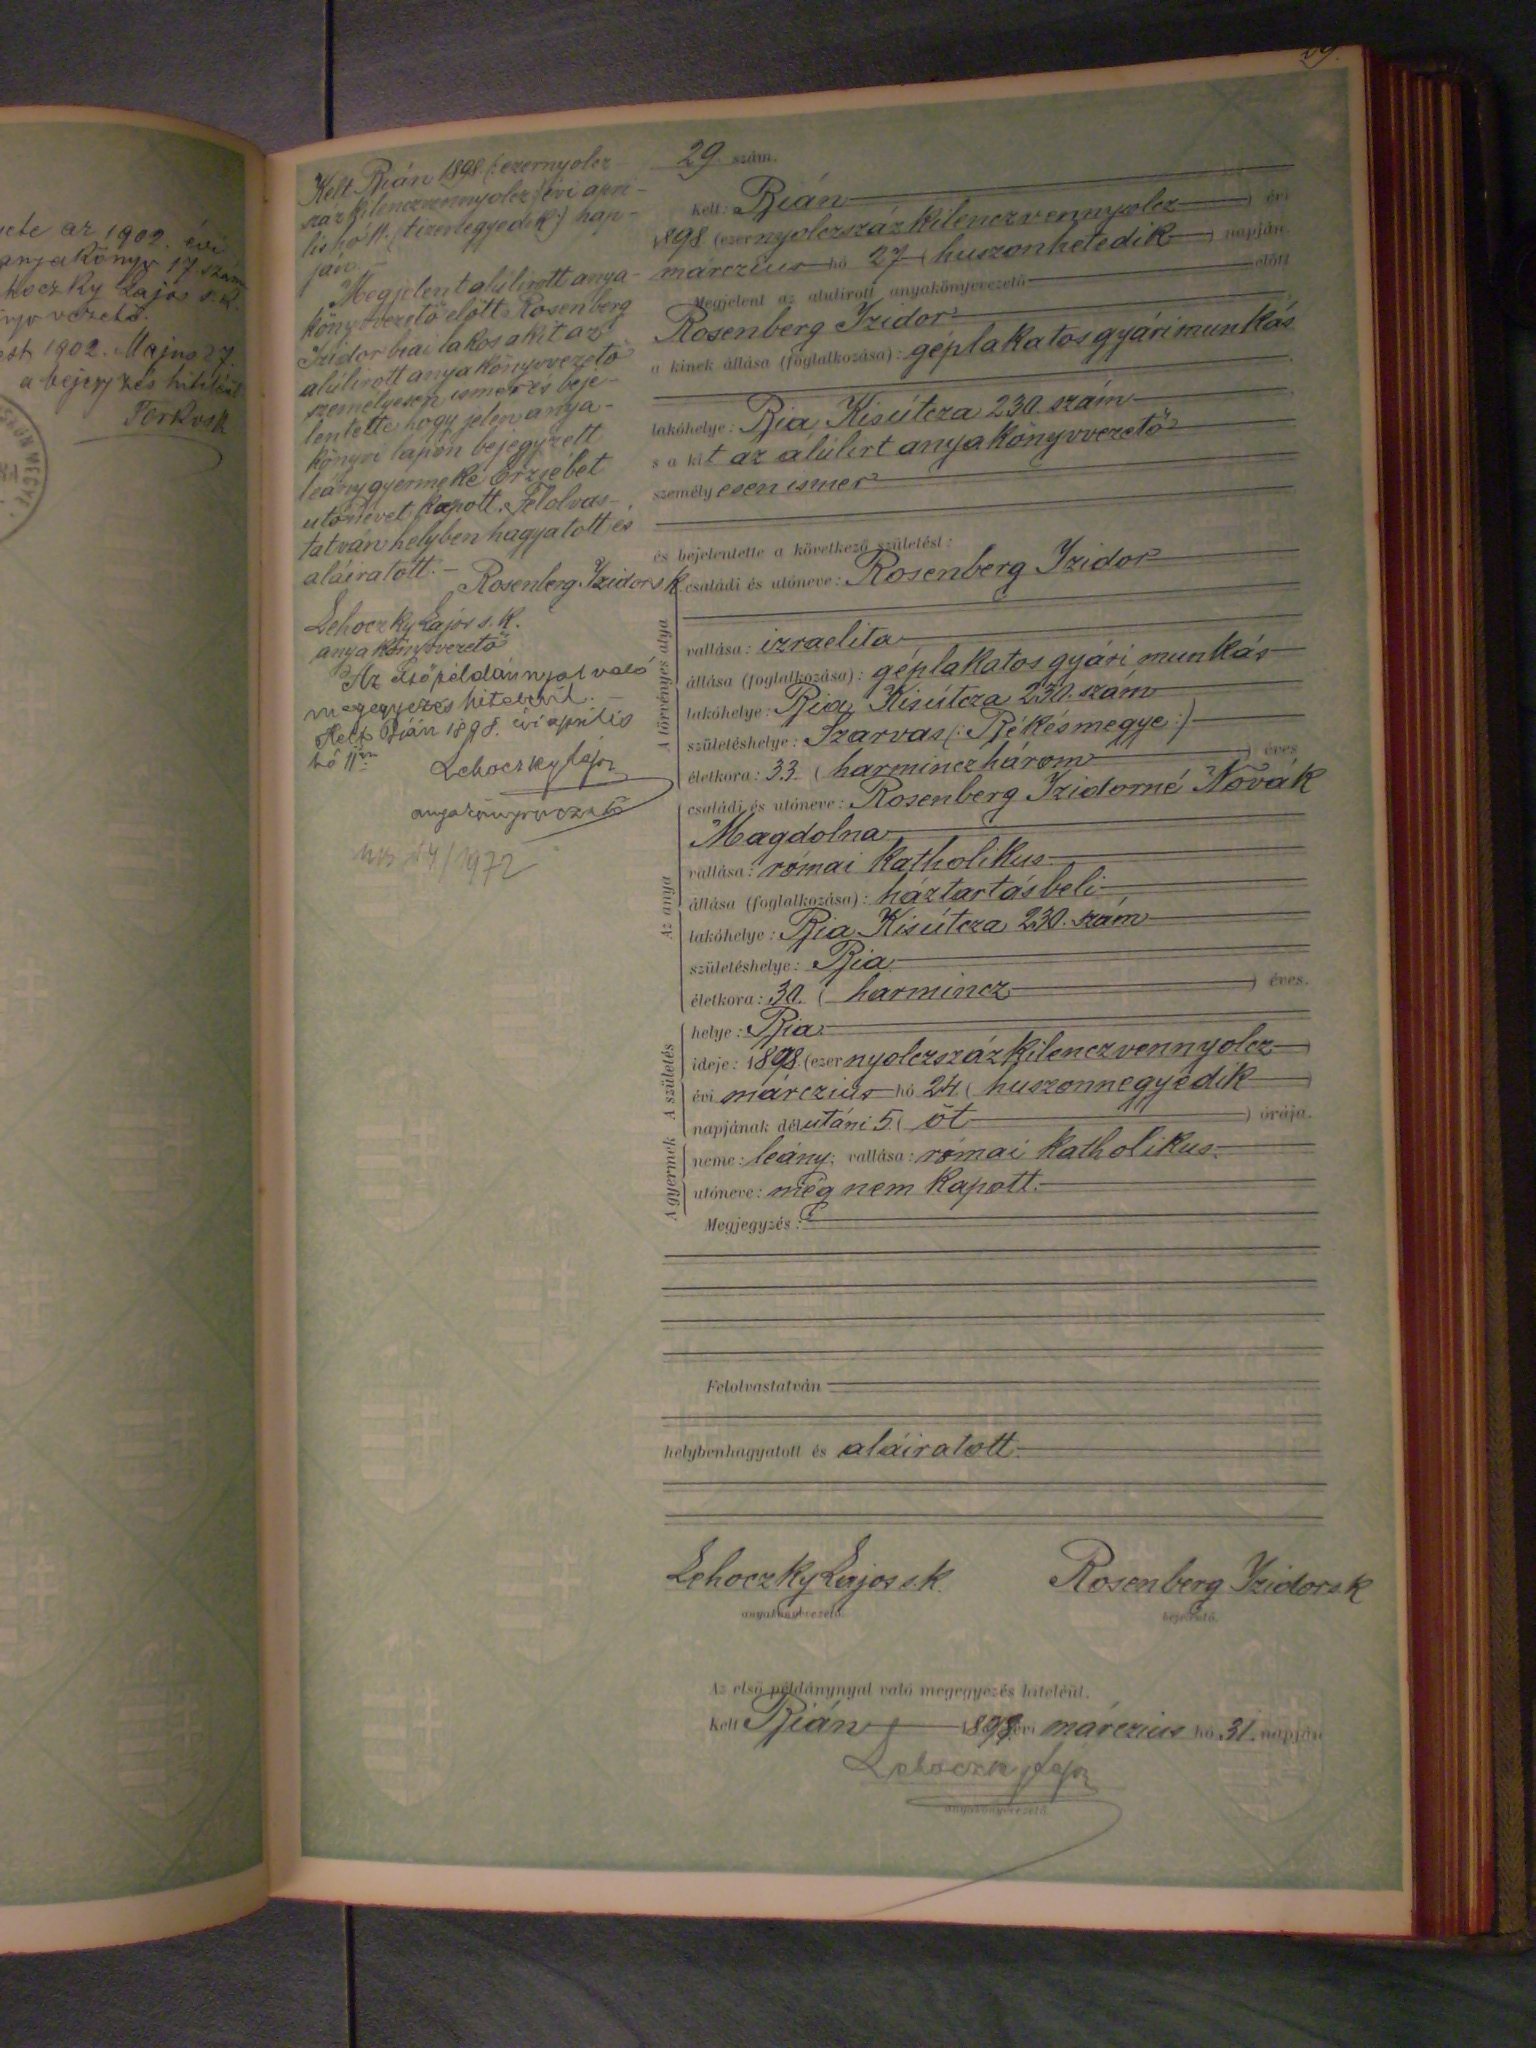 az 1902. évi
anyakönyv 17 szám
Lehoczky Lajos s. k.
vezető.
1902. Május 27.
a bejegyzés hiteléül
29.
Kelt Bián 1898 (: ezernyolcz
százkilenczvennyolcz) évi ápri-
lis hó 11. (tizenegyedik:) nap-
ján. —
Megjelent alúlirott anya-
könyvvezető előtt Rosenberg
Izidor biai lakos a kit az
alúlirott anyakönyvvezető
személyesen ismer és beje-
lentette hogy jelen anya-
könyvi lapon bejegyzett
leánygyermeke Erzsébet
utónevet kapott. Felolvas-
tatván helyben hagyatott és
aláiratott. —
Rosenberg Izidor s k.
Lehoczky Lajos s. k.
anyakönyvvezető
Az első példánnyal való
megegyezés hiteléül. —
Kelt Bián 1898. évi április
hó 11én
Lehoczky Lajos
anyakönyvvezető
17/1972
29. szám.
Kelt: Bián
1898 (ezernyolczszázkilenczvennyolcz) évi
márczius hó 27 (huszonhetedik) napján.
Megjelent az alulirott anyakönyvvezető előtt
Rosenberg Izidor
a kinek állása (foglalkozása): géplakatos gyári munkás
lakóhelye: Bia Kisútcza 230. szám
s a kit az alúlirt anyakönyvvezető
személyesen ismer
és bejelentette a következő születést:
A törvényes atya
családi és utóneve: Rosenberg Izidor
vallása: izraelita
állása (foglalkozása): géplakatos gyári munkás
lakóhelye: Bia Kisútcza 230. szám
születéshelye: Szarvas (: Békésmegye :)
életkora: 33 (harminczhárom) éves
Az anya
családi és utóneve: Rosenberg Izidorné Novák
Magdolna
vallása: római katholikus
állása (foglalkozása): háztartásbeli
lakóhelye: Bia Kisútcza 230. szám
születéshelye: Bia
életkora: 30. (harmincz) éves.
A születés
helye: Bia
ideje: 1898. (ezernyolczszázkilenczvennyolcz)
évi márczius hó 24 (huszonnegyedik)
napjának délutáni 5 (öt) órája.
A gyermek
neme: leány; vallása: római katholikus
utóneve: még nem kapott.
Megjegyzés:
Felolvastatván
helybenhagyatott és aláiratott.
Lehoczky Lajos s. k.
anyakönyvvezető.
Rosenberg Izidor s k
bejelentő.
Az első példánynyal való megegyezés hiteléül.
Kelt Bián 1898 évi márczius hó 31. napján
Lehoczky Lajos
anyakönyvvezető